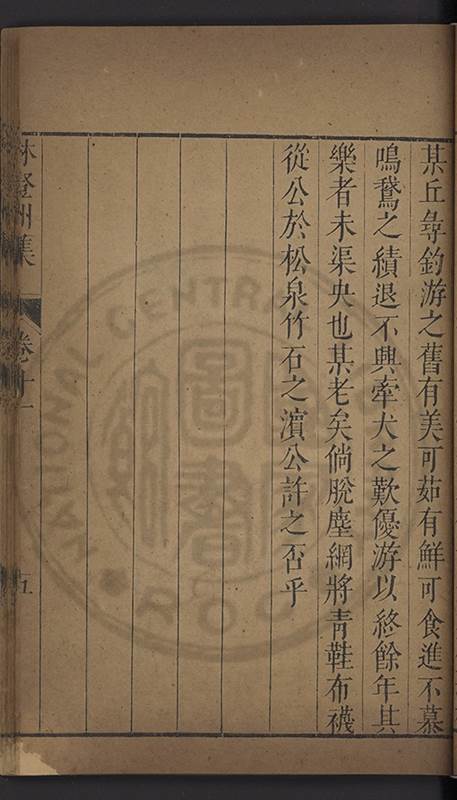 某丘尋釣游之舊有美可茹有鮮可食進不慕
鳴鵞之績退不興牽犬之歎優游以終餘年其
樂者未渠央也某老矣倘脫塵網將青鞋布襪
從公於松泉竹石之濵公許之否乎
林登州集
卷十一
五